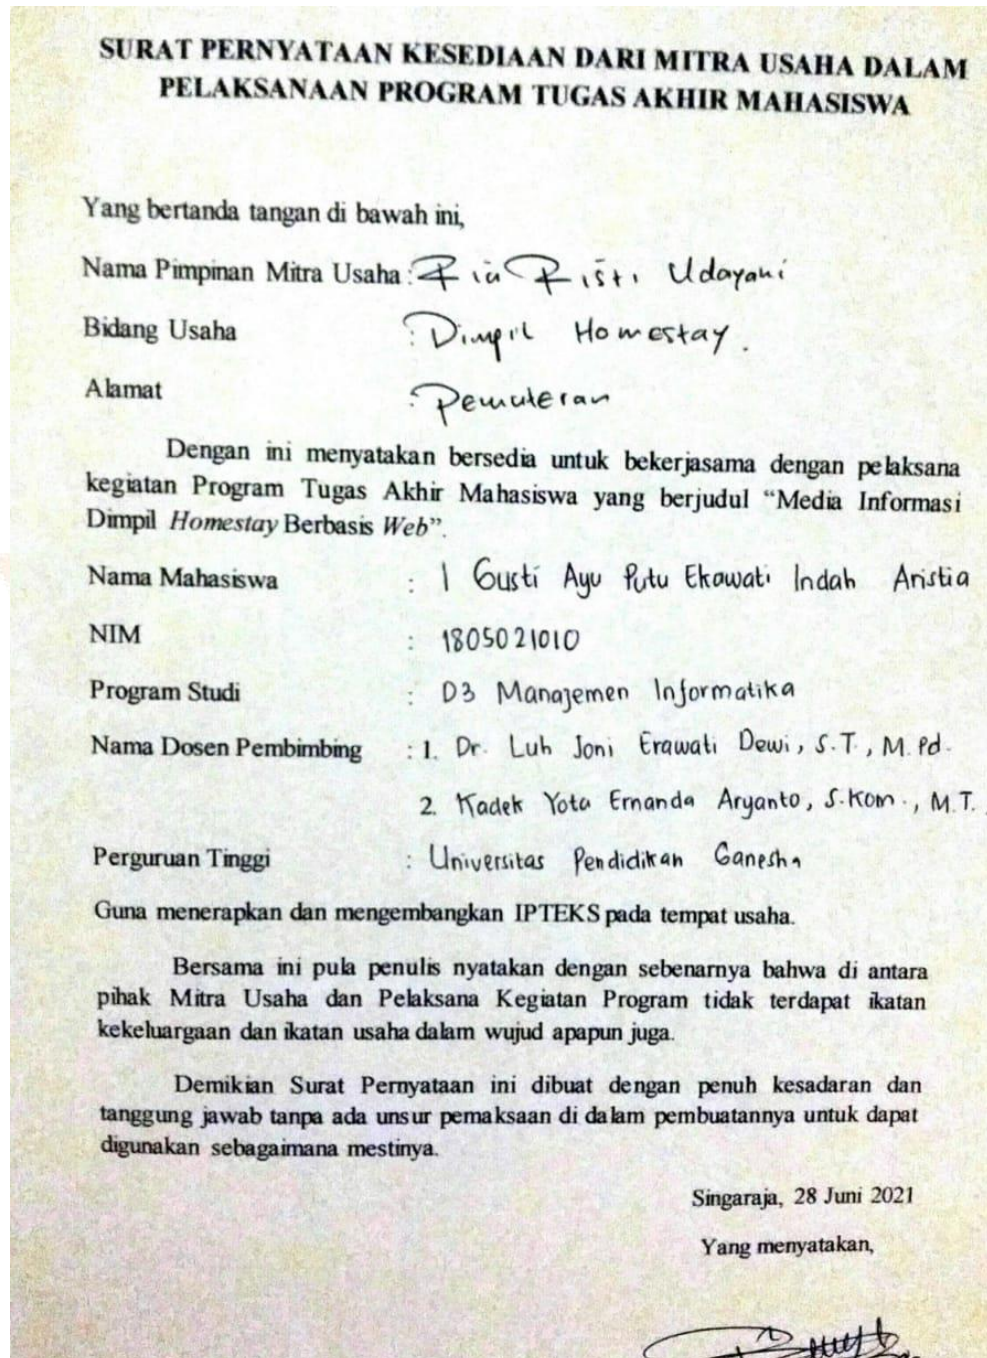 SURAT PERNYATAAN KESEDIAAN DARI MITRA USAHA DALAM
PELAKSANAAN PROGRAM TUGAS AKHIR MAHASISWA
Yang bertanda tangan di bawah ini,
Nama Pimpinan Mitra Usaha : Ria Risti Udayani
Bidang Usaha : Dimpil Homestay.
Alamat : Pemuteran
Dengan ini menyatakan bersedia untuk bekerjasama dengan pelaksana
kegiatan Program Tugas Akhir Mahasiswa yang berjudul “Media Informasi
Dimpil Homestay Berbasis Web”.
Nama Mahasiswa : I Gusti Ayu Putu Ekawati Indah Aristia
NIM : 1805021010
Program Studi : D3 Manajemen Informatika
Nama Dosen Pembimbing : 1. Dr. Luh Joni Erawati Dewi, S.T., M.Pd.
2. Kadek Yota Ernanda Aryanto, S.Kom., M.T.
Perguruan Tinggi : Universitas Pendidikan Ganesha
Guna menerapkan dan mengembangkan IPTEKS pada tempat usaha.
Bersama ini pula penulis nyatakan dengan sebenarnya bahwa di antara
pihak Mitra Usaha dan Pelaksana Kegiatan Program tidak terdapat ikatan
kekeluargaan dan ikatan usaha dalam wujud apapun juga.
Demikian Surat Pernyataan ini dibuat dengan penuh kesadaran dan
tanggung jawab tanpa ada unsur pemaksaan di dalam pembuatannya untuk dapat
digunakan sebagaimana mestinya.
Singaraja, 28 Juni 2021
Yang menyatakan,